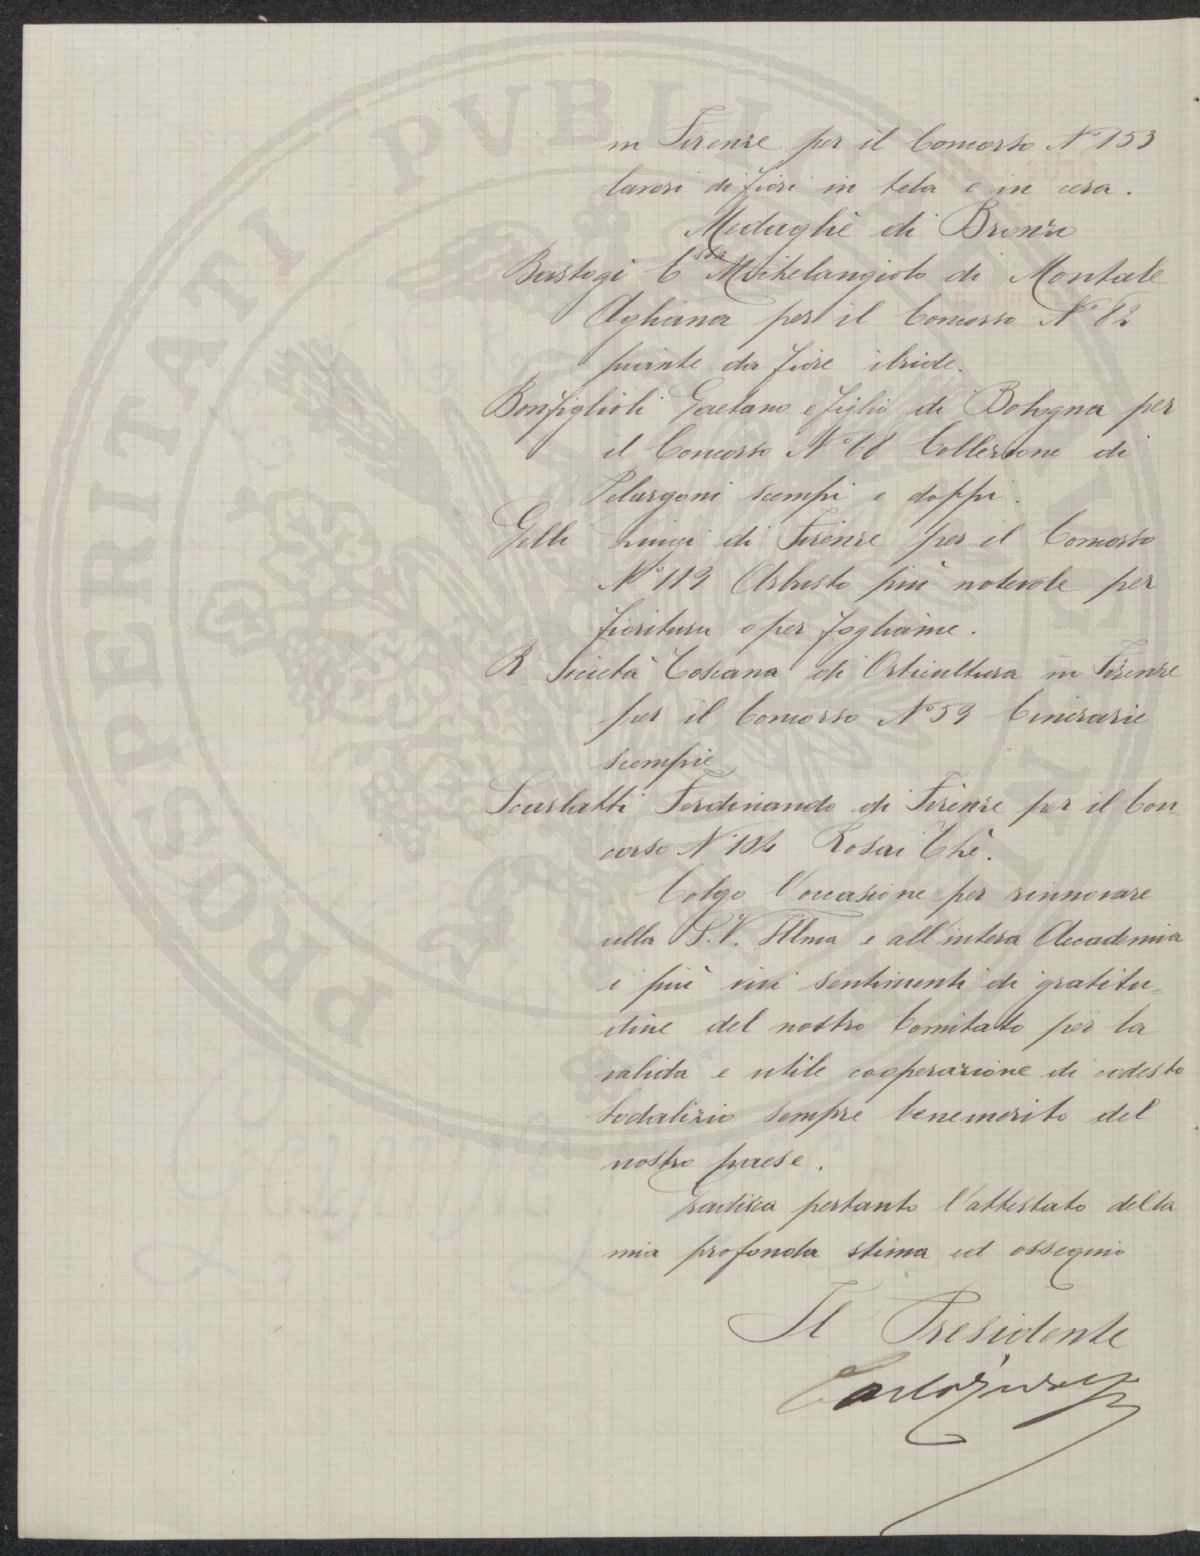 in Firenze per il Concorso N° 153
lavori di fiori in tela e in cera.
Medaglie di Bronzo
Bastogi Michelangiolo di Montale
Agliana per il Concorso N° 82
piante da fiore ibride.
Bonfiglioli Gaetano e figlio di Bologna per
il Concorso N° 68 Collezione di
Pelargoni scempi e doppi.
Gelli Luigi di Firenze per il Concorso
N° 119 Arbusto più notevole per
fioritura o per fogliame.
R Società Toscana di Orticultura in Firenze
per il Concorso N° 59 Cinerarie
scempie
Scarlatti Ferdinando di Firenze per il Con
corso N° 104 Rosai Thè.
Colgo l'occasione per rinnovare
alla S.V. Illma e all'intera Accademia
i più vivi sentimenti di gratitu=
dine del nostro Comitato per la
valida e utile cooperazione di codesto
Sodalizio sempre benemerito del
nostro paese.
Gradisca pertanto l'attestato della
mia profonda stima ed ossequio
Il Presidente
Carlo
PROSPERITATI PVBLI